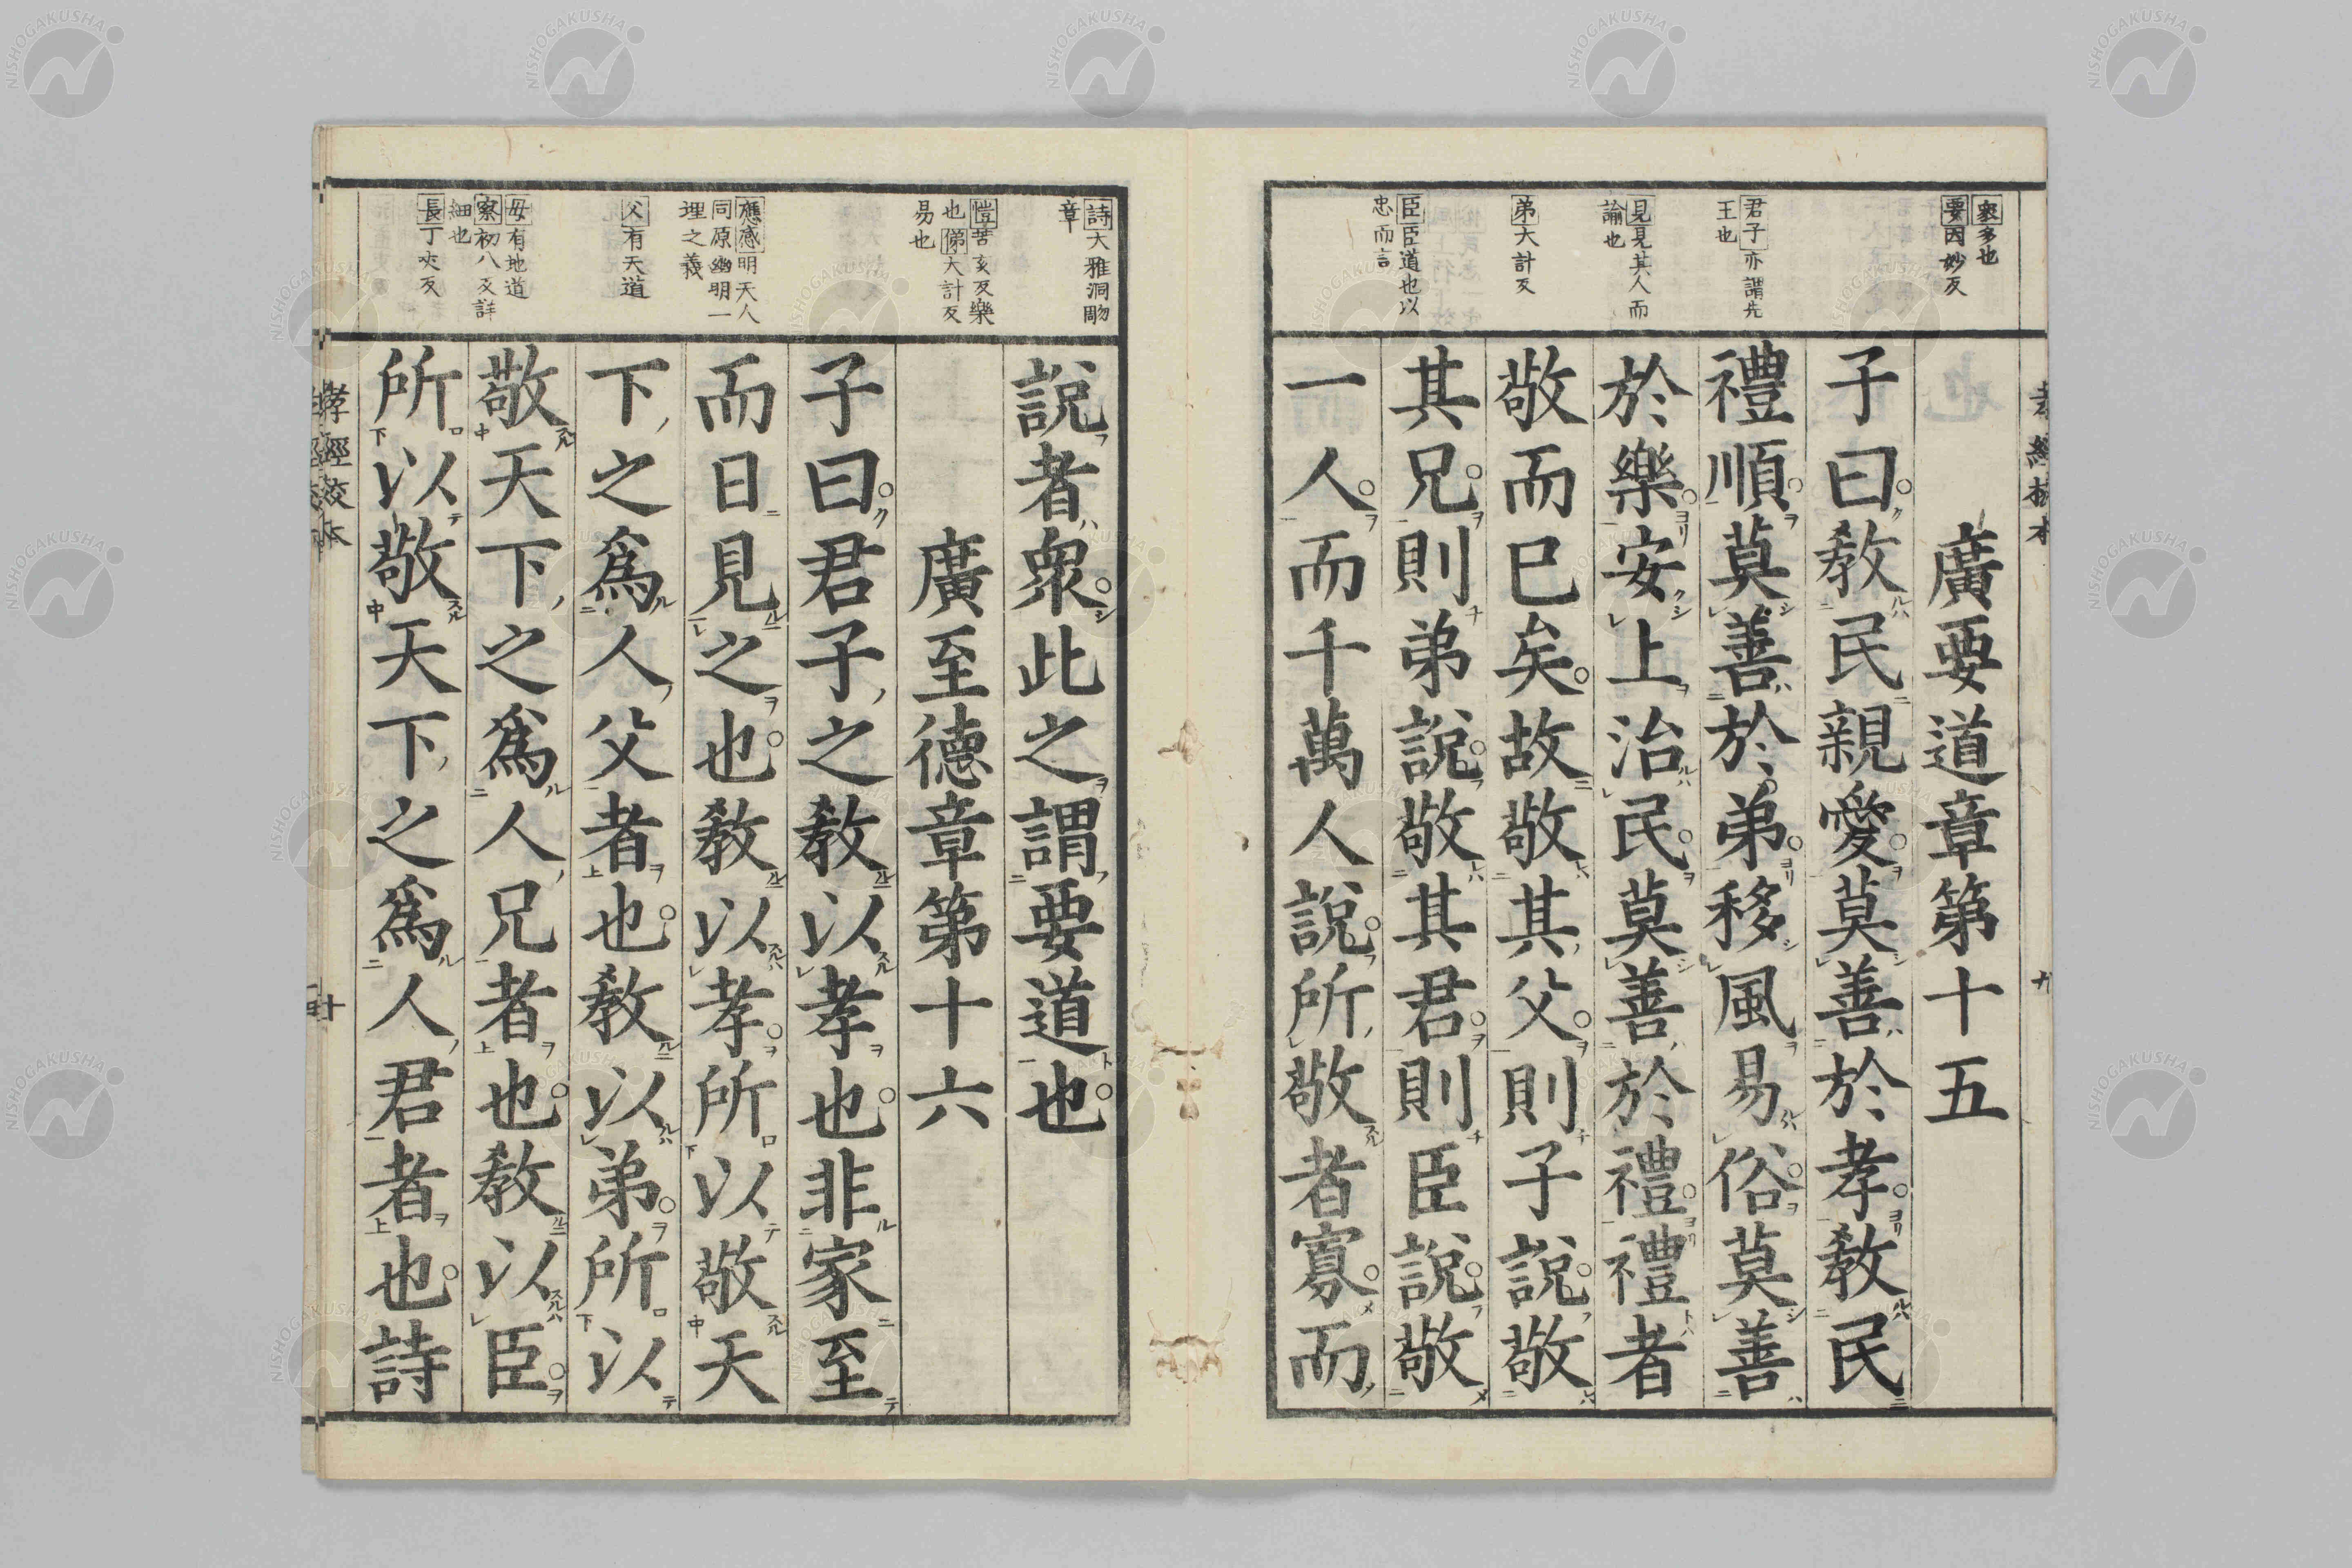 衆多也
要因妙反
君子亦謂先
王也
見見其人而
諭也
弟大計反
臣臣道也以
忠而言
廣要道章第十五
子曰教民親愛莫善於孝教民
禮順莫善於弟移風易俗莫善
於樂安上治民莫善於禮禮者
敬而已矣故敬其父則子說敬
其兄則弟說敬其君則臣說敬
一人而千萬人說所敬者寡而
詩大雅泂酌
章
愷苦亥反樂
也悌大計反
易也
應感明天人
同原幽明一
理之義
父有天道
母有地道
察初八反詳
細也
長丁丈反
說者衆此之謂要道也
廣至德章第十六
子曰君子之教以孝也非家至
而日見之也教以孝所以敬天
下之爲人父者也教以弟所以
敬天下之爲人兄者也教以臣
所以敬天下之爲人君者也詩
孝經校本
十
NISHOGAKUSHA